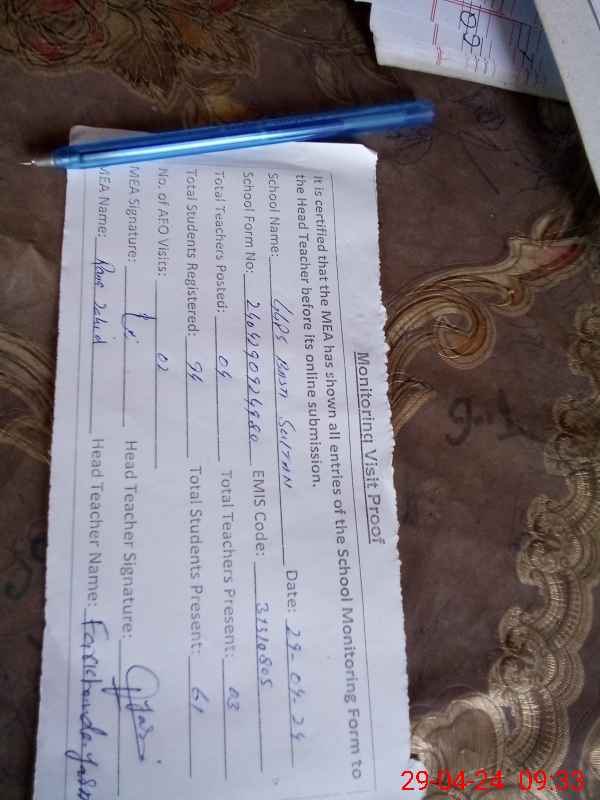 Monitoring Visit Proof
It is certified that the MEA has shown all entries of the School Monitoring Form to
the Head Teacher before its online submission.
School Name: GGPS BASTI SULTAN Date: 29-04-24
School Form No: EMIS Code: 31310805
Total Teachers Posted: 04 Total Teachers Present: 03
Total Students Registered: 94 Total Students Present: 61
No. of AFO Visits: 02
MEA Signature: Head Teacher Signature:
MEA Name: Rana Zahid Head Teacher Name: Farkhanda
29-04-24 09:33